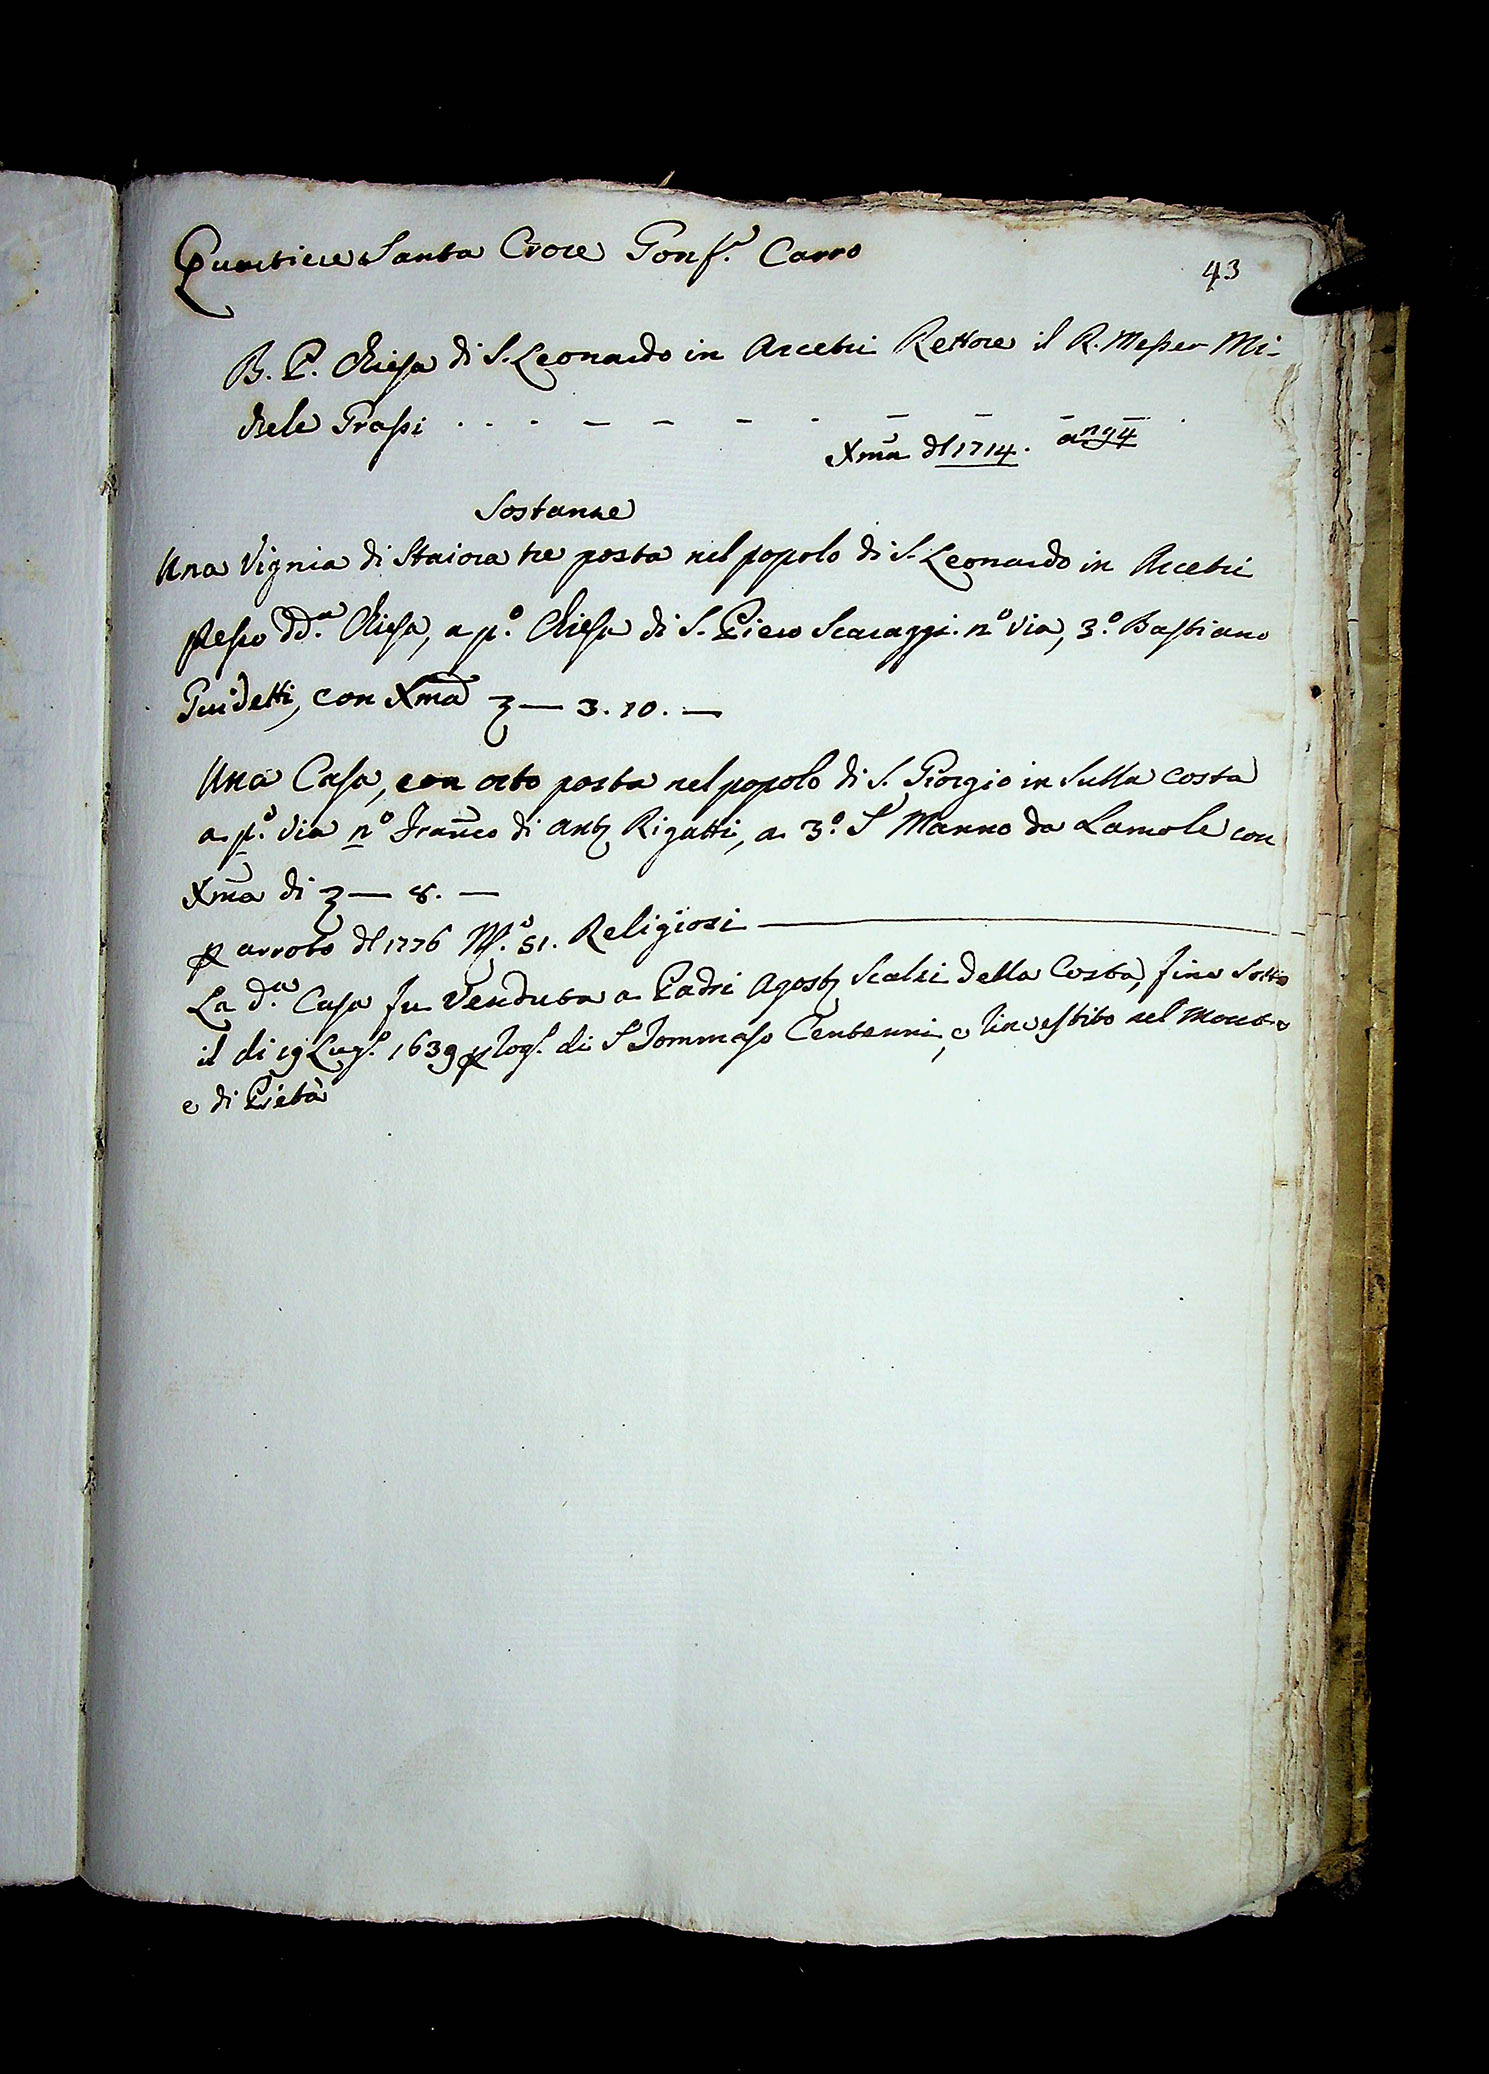 Quartiere Santa Croce Gonf.e Carro
43
B. P. Chiesa di S. Leonardo in Arcetri Rettore il R. Messer Mi-
chele Grassi
Xma dl 1714.
Sostanze
Una Vignia di Staiora tre posta nel popolo di S. Leonardo in Arcetri
presso dd.a Chiesa, a p.o Chiesa di S. Piero Scaraggi. n.o via, 3.o Bastiano
Guidetti, con Xma — 3. 10. —
Una Casa, con orto posta nel popolo di S. Giorgio in Sulla Costa
a p.o via n.o Franco di Ant Rigatti, a 3.o S Manno da Lamole con
Xma di — 8. —
p arroto dl 1776 N.o 51. Religiosi
La d.a Casa fu Venduta a Padri Agost Scalzi della Costa, fino sotto
il di 19 Lugl. 1639 p rog. di S Tommaso Centenni, e Rinvestito nel Monte
e di Pietà